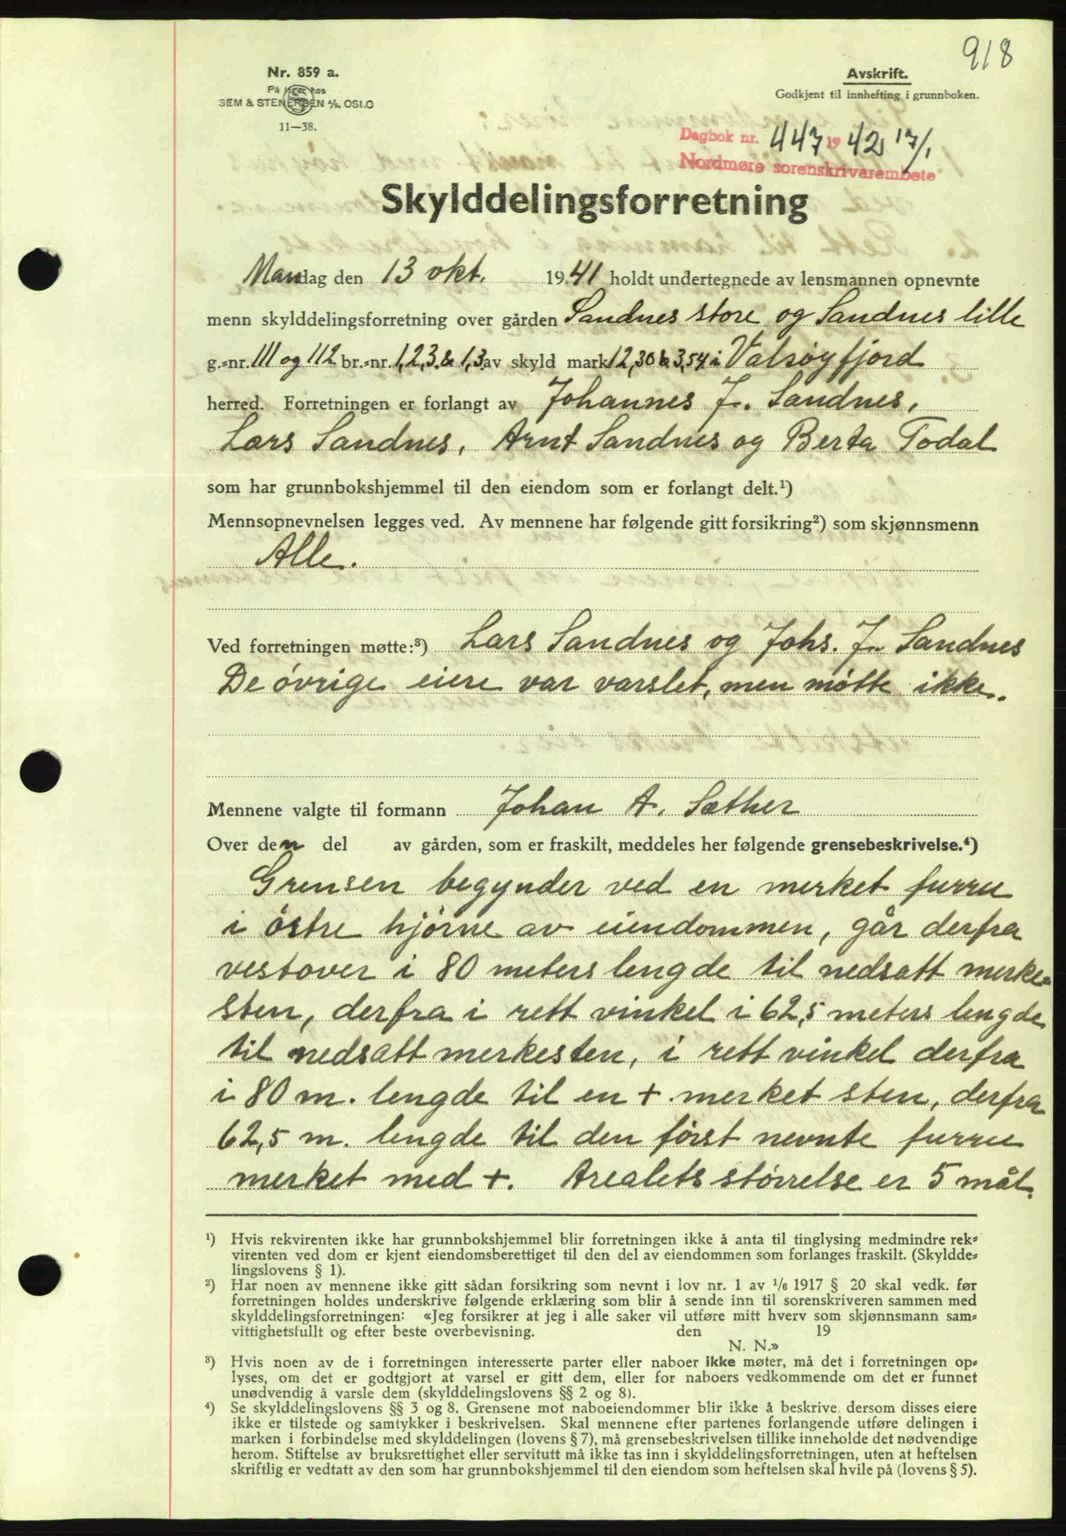 918
Nr. 859 a.
På lager hos
SEM & STENERSEN A/S, OSLO
11—38.
Avskrift.
Godkjent til innhefting i grunnboken.
Dagbok nr. 447 1942 17/1
Nordmøre sorenskrivarembete
Skylddelingsforretning
Mandag den 13 okt. 1941 holdt undertegnede av lensmannen opnevnte
menn skylddelingsforretning over gården Sandnes store og Sandnes lille
g.-nr. 111 og 112 br.-nr. 1,2,3 & 1,3 av skyld mark 12,30 & 3,54 i Valsøyfjord
herred. Forretningen er forlangt av Johannes J. Sandnes,
Lars Sandnes, Arnt Sandnes og Berta Todal
som har grunnbokshjemmel til den eiendom som er forlangt delt.¹)
Mennsopnevnelsen legges ved. Av mennene har følgende gitt forsikring²) som skjønnsmenn
Alle.
Ved forretningen møtte:³) Lars Sandnes og Johs. J. Sandnes
De övrige eiere var varslet, men møtte ikke.
Mennene valgte til formann Johan A. Sæther
Over den del av gården, som er fraskilt, meddeles her følgende grensebeskrivelse.⁴)
Grensen begynder ved en merket furru
i östre hjörne av eiendommen, går derfra
vestover i 80 meters lengde til nedsatt merke-
sten, derfra i rett vinkel i 62,5 meters lengde
til nedsatt merkesten, i rett vinkel derfra
i 80 m. lengde til en + merket sten, derfra
62,5 m. lengde til den først nevnte furru
merket med +. Arealets størrelse er 5 mål.
¹) Hvis rekvirenten ikke har grunnbokshjemmel blir forretningen ikke å anta til tinglysing medmindre rek-
virenten ved dom er kjent eiendomsberettiget til den del av eiendommen som forlanges fraskilt. (Skyldde-
lingslovens § 1).
²) Har noen av mennene ikke gitt sådan forsikring som nevnt i lov nr. 1 av 1/6 1917 § 20 skal vedk. før
forretningen holdes underskrive følgende erklæring som blir å sende inn til sorenskriveren sammen med
skylddelingsforretningen: «Jeg forsikrer at jeg i alle saker vil utføre mitt hverv som skjønnsmann sam-
vittighetsfullt og efter beste overbevisning. den 19
N. N.»
³) Hvis noen av de i forretningen interesserte parter eller naboer ikke møter, må det i forretningen op-
lyses, om det er godtgjort at varsel er gitt dem, eller for naboers vedkommende om det er funnet
unødvendig å varsle dem (skylddelingslovens §§ 2 og 8).
⁴) Se skylddelingslovens §§ 3 og 8. Grensene mot naboeiendommer blir ikke å beskrive, dersom disses eiere
ikke er tilstede og samtykker i beskrivelsen. Skal mennene efter partenes forlangende utføre delingen i
marken i forbindelse med skylddelingen (lovens § 7), må grensebeskrivelsen tillike inneholde det nødvendige
herom. Stiftelse av bruksrettighet eller servitutt må ikke tas inn i skylddelingsforretningen, uten at heftelsen
skriftlig er vedtatt av den som har grunnbokshjemmel til den eiendom som heftelsen skal hvile på (lovens § 5).